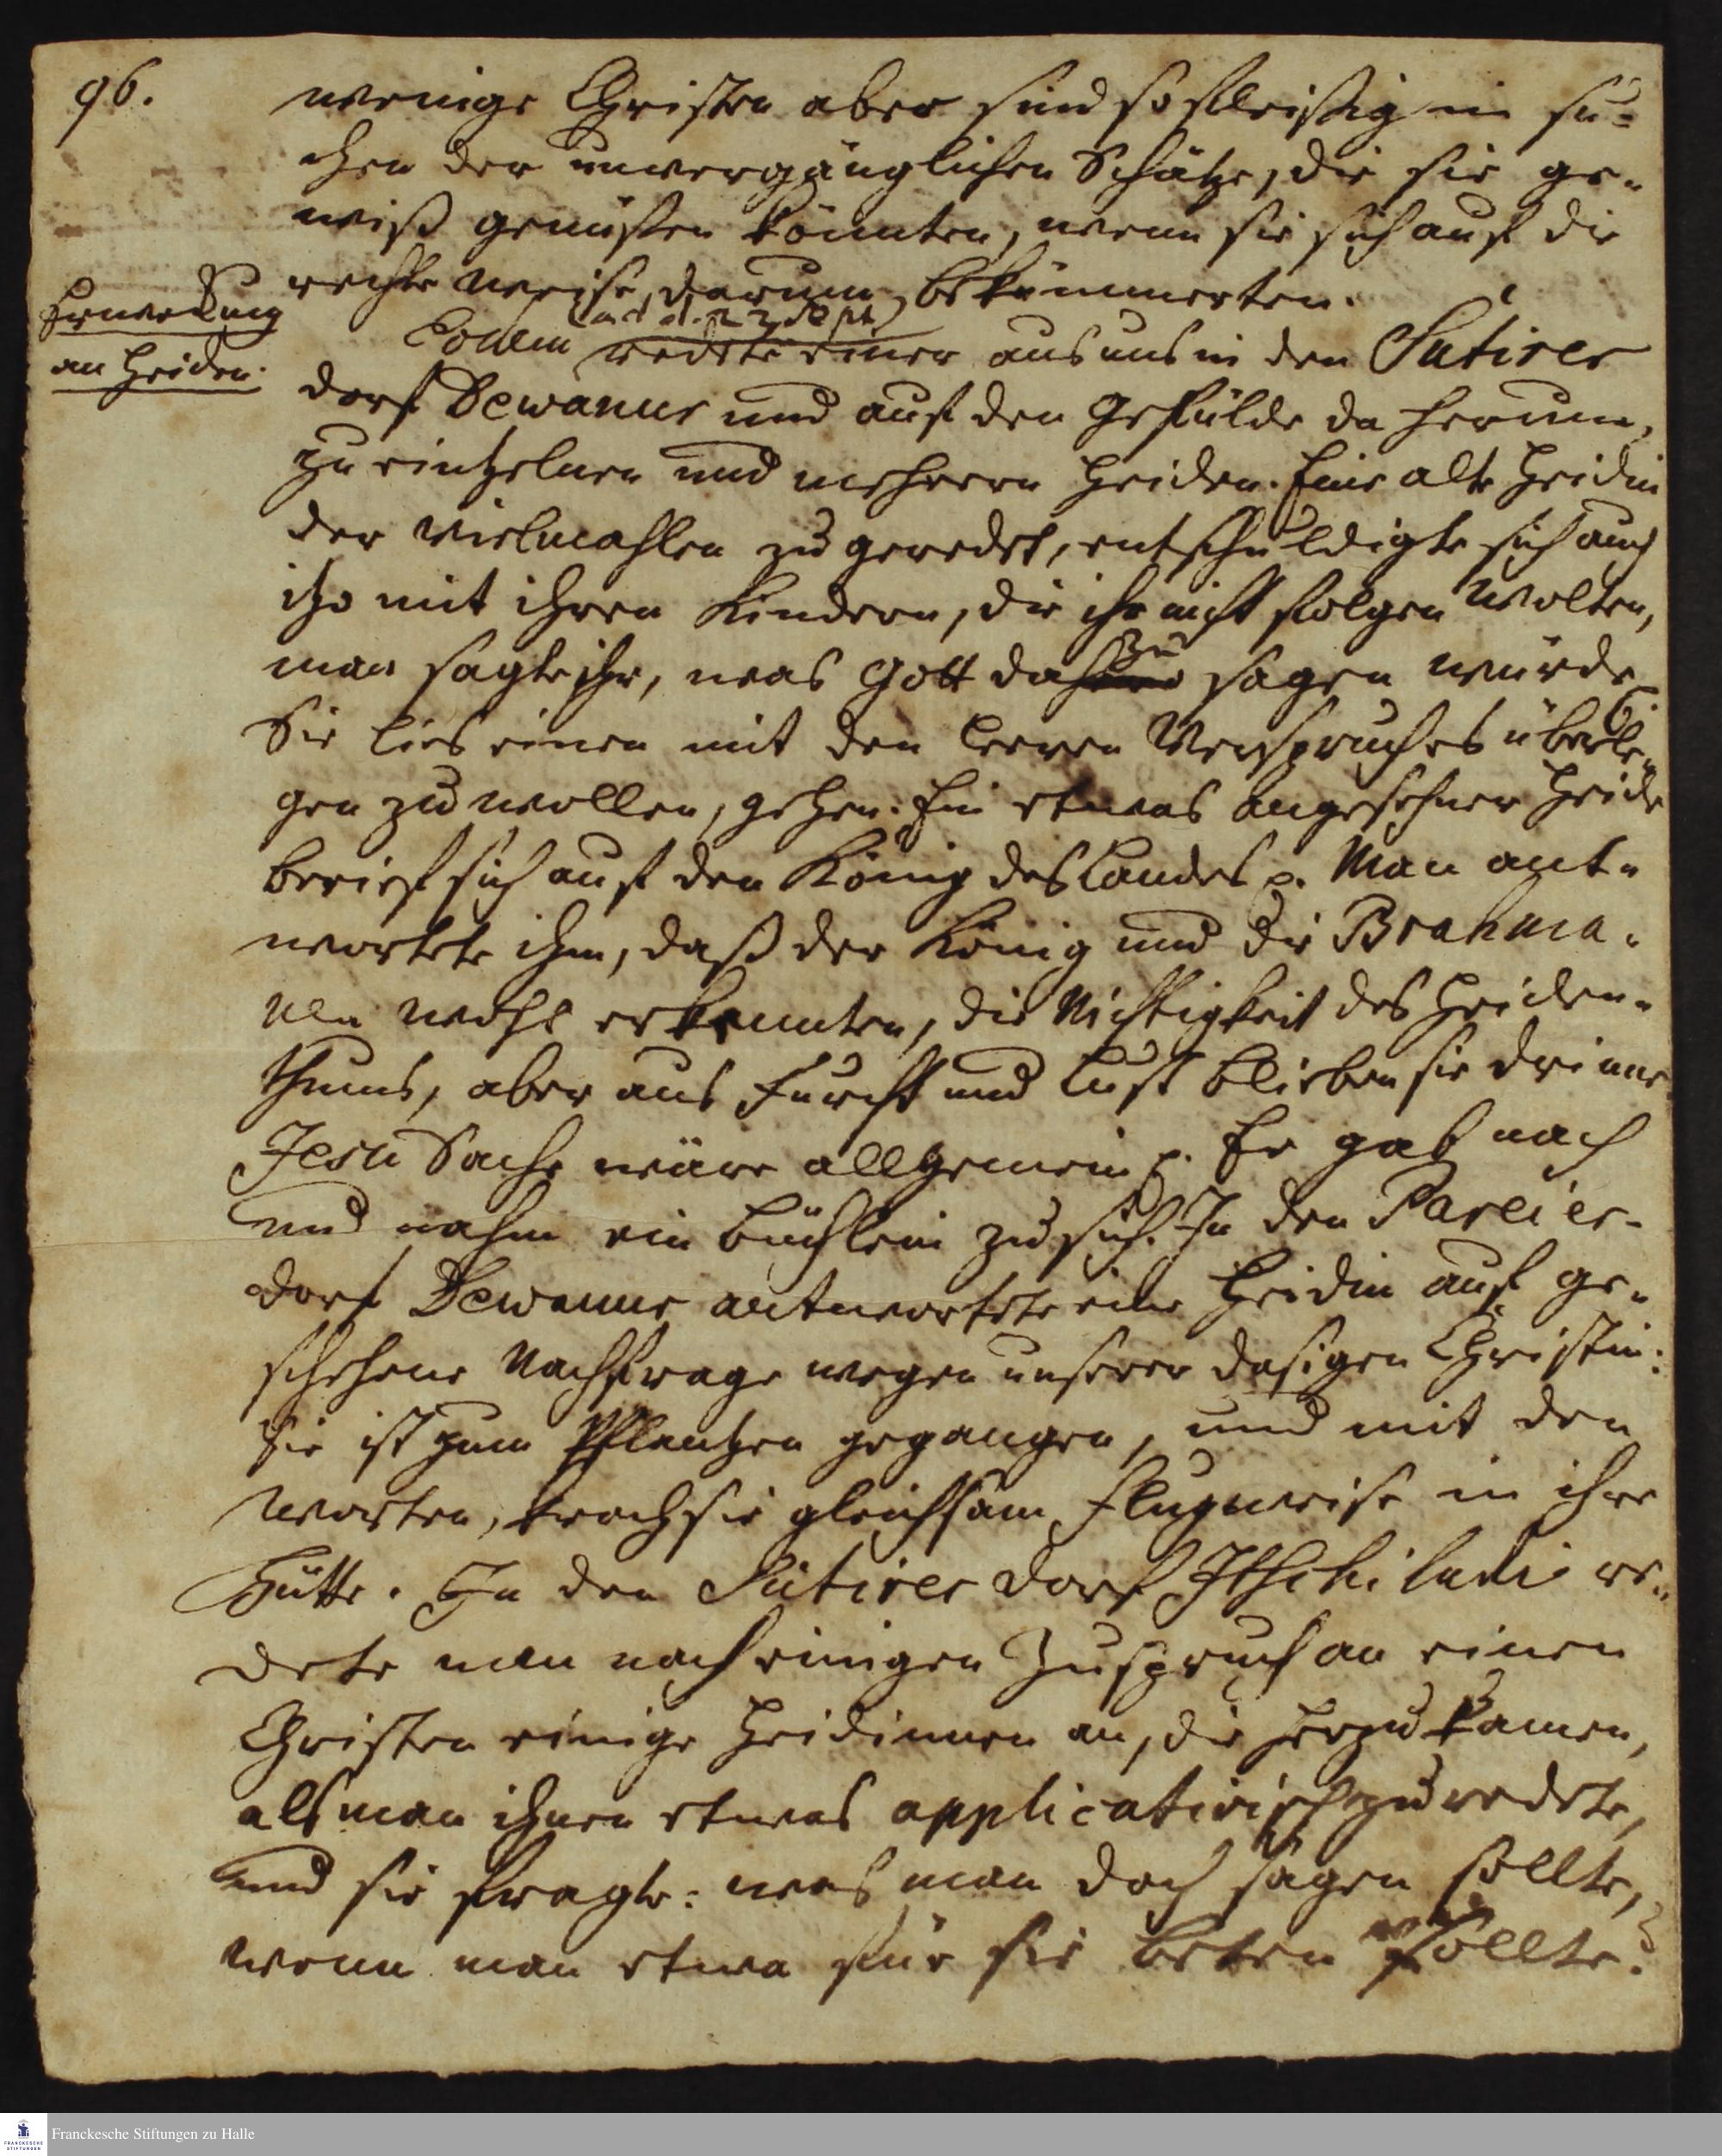 96.
wenige Christen aber sind so fleißig in su-
chen der unvergänglichen Schätze, die sie ge-
wiß genüßen könnten, wenn sie sich auf die
rechte Weise darum bekümmerten.
Ermahnung
an Heiden.
Eodem (ad d. 23 Sept) redete einer aus uns in den Sutirer
dorf Dewanur und auf den Gefülde da herum,
zu eintzelnen und mehrern Heiden. Eine alte Heidin
der vielmahlen zu geredet, entschuldigte sich auch
itzo mit ihren Kindern, die ihr nicht folgen wolten,
man sagte ihr, was Gott da zu sagen würde.
Sie lies einen mit den leeren Verspruch es überle-
gen zu wollen, gehen. Ein etwas angesehner Heide
berief sich auf den König des Landes p. Man ant-
wortete ihm, daß der König und die Brahma-
nen wohl erkennten, die Nichtigkeit des Heiden-
thums, aber aus Furcht und Lust blieben sie drinne
Jesu Sache wäre allgemein p. Er gab nach
und nahm ein Büchlein zu sich. In den Pareier-
dorf Dewanur antwortete eine Heidin auf ge-
schehene Nachfrage wegen unserer dasigen Christin:
Sie ist zum Pflantzen gegangen, und mit den
Worten, kroch sie gleichsam flugweise in ihre
Hütte. In den Sutirer dorf Itschiladi re-
dete man nach einigen Zuspruch an einen
Christen einige Heidinnen an, die herzu kamen,
als man ihnen etwas applicativisch zu redete,
und sie fragte: was man doch sagen sollte,
wenn man etwa für sie beten sollte?
Franckesche Stiftungen zu Halle